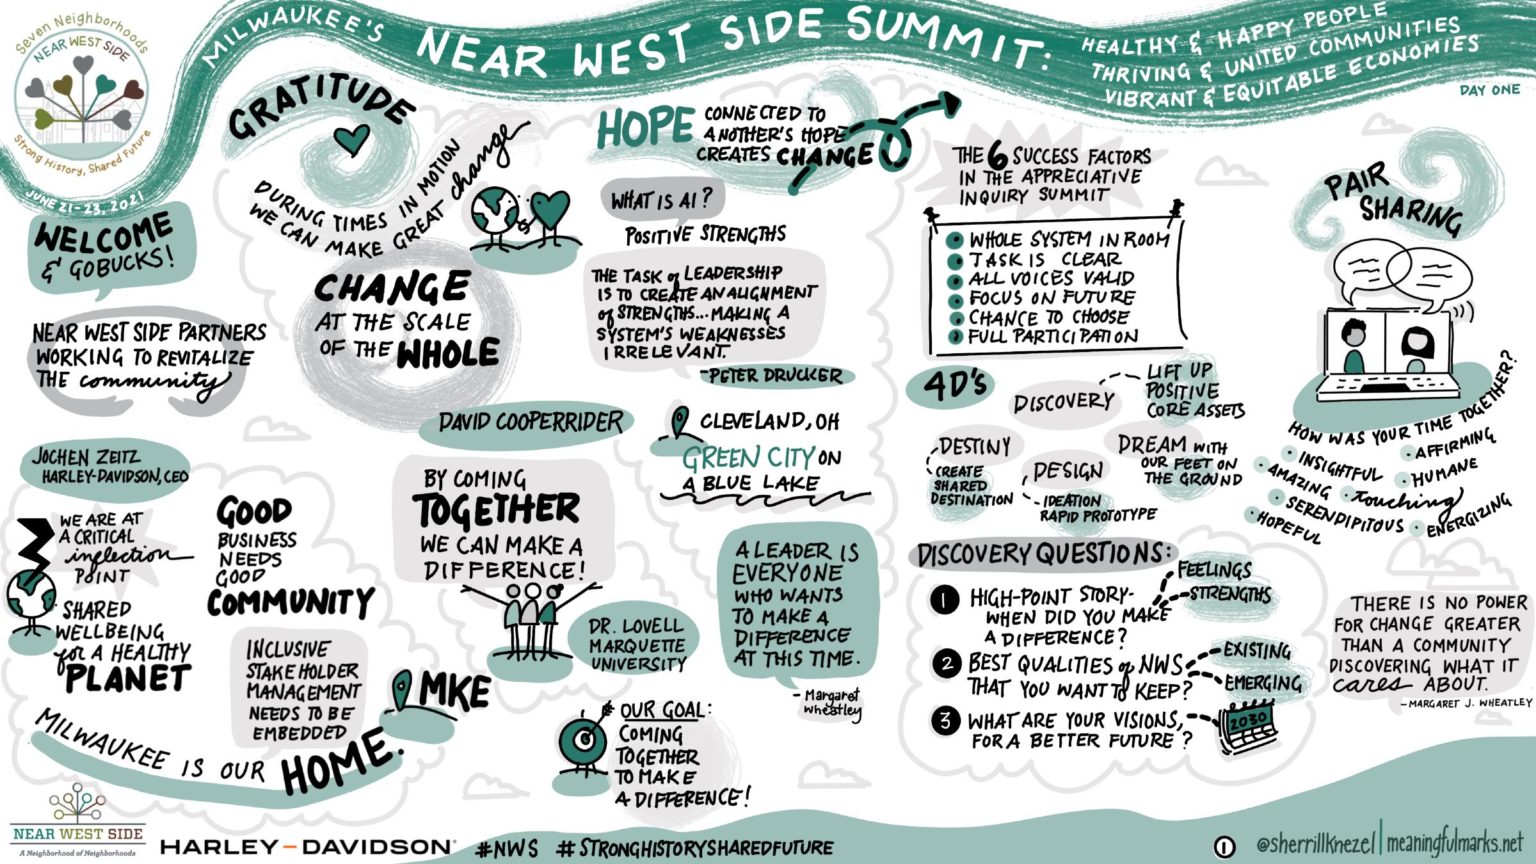 Seven Neighborhoods
NEAR WEST SIDE
Strong History, Shared Future
MILWAUKEE'S NEAR WEST SIDE SUMMIT:
HEALTHY & HAPPY PEOPLE
THRIVING & UNITED COMMUNITIES
VIBRANT & EQUITABLE ECONOMIES
DAY ONE
JUNE 21-23, 2021
WELCOME
& GOBUCKS!
NEAR WEST SIDE PARTNERS
WORKING TO REVITALIZE
THE community
GRATITUDE
DURING TIMES IN MOTION
WE CAN MAKE GREAT change
CHANGE
AT THE SCALE
OF THE WHOLE
HOPE
CONNECTED TO
ANOTHER'S HOPE
CREATES CHANGE
WHAT IS AI?
POSITIVE STRENGTHS
THE TASK of LEADERSHIP
IS TO CREATE AN ALIGNMENT
of STRENGTHS... MAKING A
SYSTEM'S WEAKNESSES
IRRELEVANT.
-PETER DRUCKER
DAVID COOPERRIDER
CLEVELAND, OH
GREEN CITY ON
A BLUE LAKE
JOCHEN ZEITZ
HARLEY-DAVIDSON, CEO
WE ARE AT
A CRITICAL
inflection
POINT
SHARED
WELLBEING
for A HEALTHY
PLANET
GOOD
BUSINESS
NEEDS
GOOD
COMMUNITY
INCLUSIVE
STAKEHOLDER
MANAGEMENT
NEEDS TO BE
EMBEDDED
MKE
MILWAUKEE IS OUR HOME.
BY COMING
TOGETHER
WE CAN MAKE A
DIFFERENCE!
DR. LOVELL
MARQUETTE
UNIVERSITY
A LEADER IS
EVERYONE
WHO WANTS
TO MAKE A
DIFFERENCE
AT THIS TIME.
- Margaret
Wheatley
OUR GOAL:
COMING
TOGETHER
TO MAKE
A DIFFERENCE!
THE 6 SUCCESS FACTORS
IN THE APPRECIATIVE
INQUIRY SUMMIT
WHOLE SYSTEM IN ROOM
TASK IS CLEAR
ALL VOICES VALID
FOCUS ON FUTURE
CHANCE TO CHOOSE
FULL PARTICIPATION
4D's
DISCOVERY
LIFT UP
POSITIVE
CORE ASSETS
DREAM WITH
OUR FEET ON
THE GROUND
DESIGN
- IDEATION
RAPID PROTOTYPE
DESTINY
CREATE
SHARED
DESTINATION
DISCOVERY QUESTIONS:
1 HIGH-POINT STORY-
WHEN DID YOU MAKE
A DIFFERENCE?
FEELINGS
STRENGTHS
2 BEST QUALITIES of NWS
THAT YOU WANT to KEEP?
EXISTING
EMERGING
3 WHAT ARE YOUR VISIONS,
FOR A BETTER FUTURE?
2030
PAIR
SHARING
HOW WAS YOUR TIME TOGETHER?
• INSIGHTFUL
• AFFIRMING
• AMAZING
• touching
• HUMANE
• SERENDIPITOUS
• ENERGIZING
• HOPEFUL
THERE IS NO POWER
FOR CHANGE GREATER
THAN A COMMUNITY
DISCOVERING WHAT IT
cares ABOUT.
- MARGARET J. WHEATLEY
NEAR WEST SIDE
A Neighborhood of Neighborhoods
HARLEY-DAVIDSON
#NWS #STRONGHISTORYSHAREDFUTURE
1
@sherrillknezel | meaningfulmarks.net